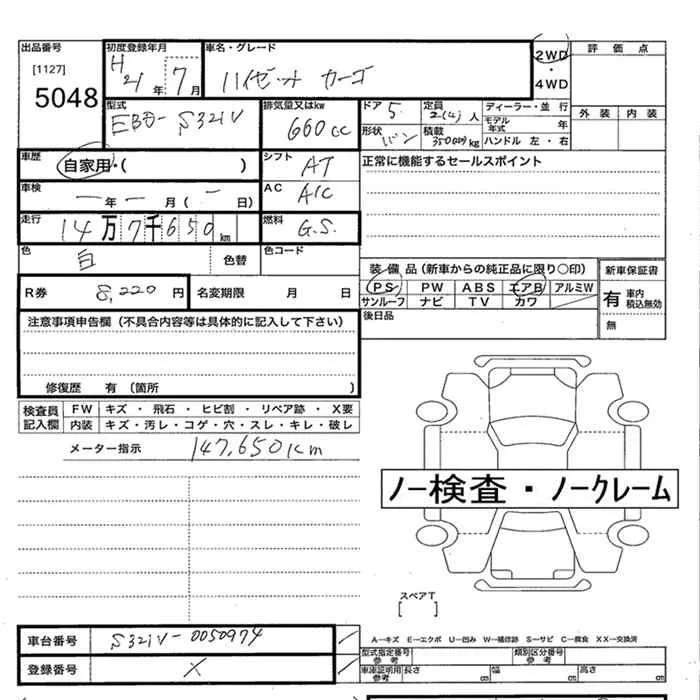 出品番号
[1127]
5048
初度登録年月
H 21年 7月
車名・グレード
ハイゼット カーゴ
2WD
・
4WD
評価点
外装 内装
型式
EBD-S321V
排気量又はkw
660cc
ドア 5
定員 2(4)人
形状 バン
積載 350(200)kg
ディーラー・並行
モデル年式 年
ハンドル 左・右
車歴
自家用・( )
シフト
AT
正常に機能するセールスポイント
車検
ー年ー月(ー日)
AC
A/C
走行
14万7千650km
燃料
G.S.
色
白
色替
色コード
装備品(新車からの純正品に限り○印)
PS PW ABS エアB アルミW
サンルーフ ナビ TV カワ
新車保証書
有 車内積込無効
無
R券 8,220円
名変期限 月 日
後日品
注意事項申告欄(不具合内容等は具体的に記入して下さい)
修復歴 有(箇所 )
検査員記入欄
FW キズ・飛石・ヒビ割・リペア跡・X要
内装 キズ・汚レ・コゲ・穴・スレ・キレ・破レ
メーター指示 147,650km
ノー検査・ノークレーム
スペアT
[ ]
車台番号 S321V-0050974
登録番号 X
A―キズ E―エクボ U―凹み W―補修跡 S―サビ C―腐食 XX―交換済
型式指定番号参考
類別区分番号参考
車庫証明用参考 長さ cm 幅 cm 高さ cm